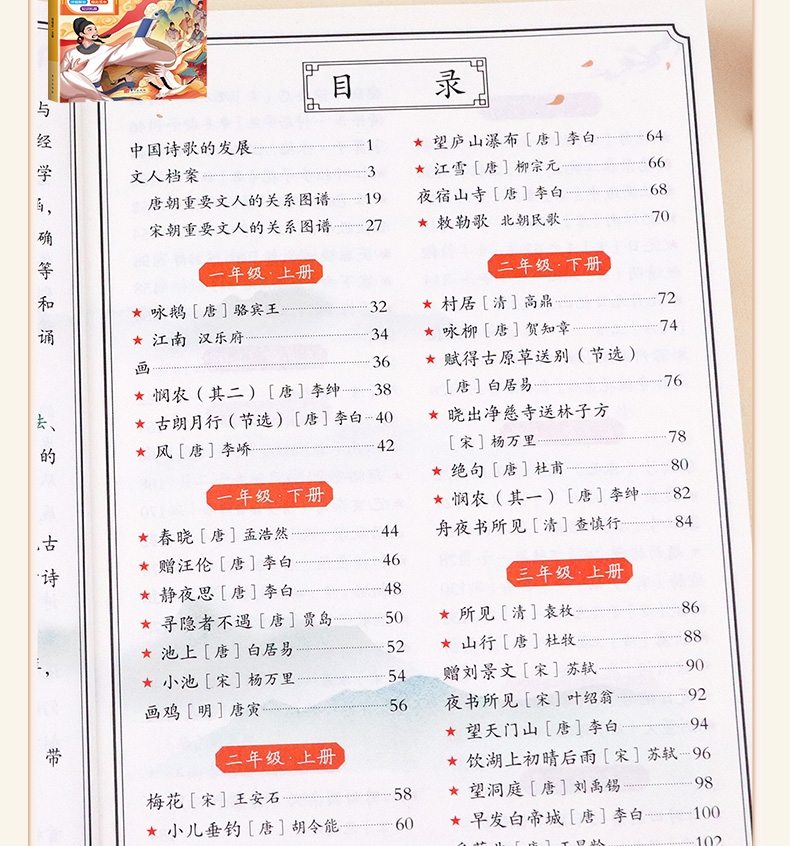 目 录
中国诗歌的发展 1
文人档案 3
唐朝重要文人的关系图谱 19
宋朝重要文人的关系图谱 27
一年级·上册
★ 咏鹅［唐］骆宾王 32
★ 江南 汉乐府 34
画 36
★ 悯农（其二）［唐］李绅 38
★ 古朗月行（节选）［唐］李白 40
★ 风［唐］李峤 42
一年级·下册
★ 春晓［唐］孟浩然 44
★ 赠汪伦［唐］李白 46
★ 静夜思［唐］李白 48
★ 寻隐者不遇［唐］贾岛 50
★ 池上［唐］白居易 52
★ 小池［宋］杨万里 54
画鸡［明］唐寅 56
二年级·上册
梅花［宋］王安石 58
★ 小儿垂钓［唐］胡令能 60
★ 望庐山瀑布［唐］李白 64
★ 江雪［唐］柳宗元 66
夜宿山寺［唐］李白 68
★ 敕勒歌 北朝民歌 70
二年级·下册
★ 村居［清］高鼎 72
★ 咏柳［唐］贺知章 74
★ 赋得古原草送别（节选）
［唐］白居易 76
★ 晓出净慈寺送林子方
［宋］杨万里 78
★ 绝句［唐］杜甫 80
★ 悯农（其一）［唐］李绅 82
舟夜书所见［清］查慎行 84
三年级·上册
★ 所见［清］袁枚 86
★ 山行［唐］杜牧 88
赠刘景文［宋］苏轼 90
夜书所见［宋］叶绍翁 92
★ 望天门山［唐］李白 94
★ 饮湖上初晴后雨［宋］苏轼 96
★ 望洞庭［唐］刘禹锡 98
★ 早发白帝城［唐］李白 100
102
与
经
学
确
等
和
诵
法、
的
古
诗
带